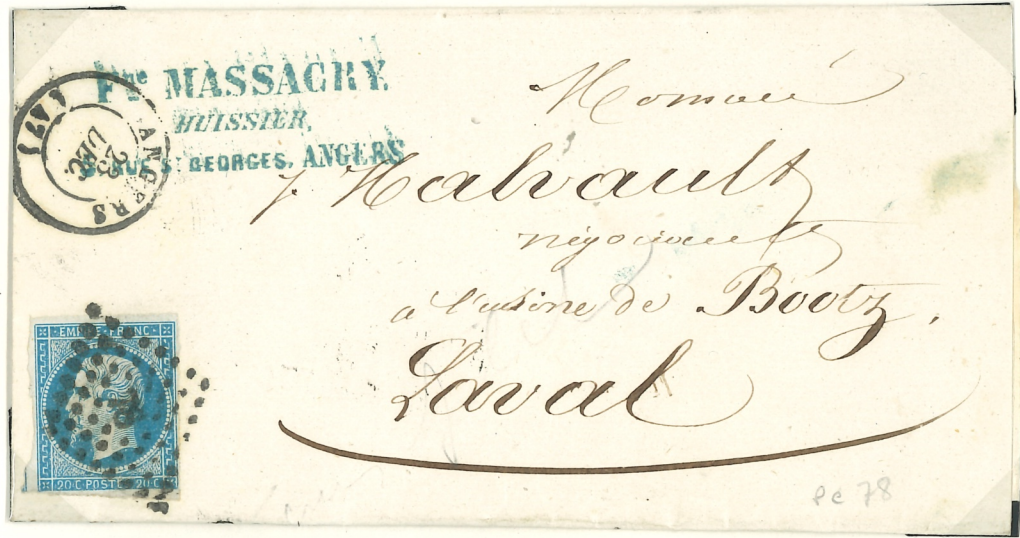 Fne MASSACRY.
HUISSIER,
RUE St GEORGES. ANGERS
ANGERS
23
DEC
Monsieur
J. Halvault
négociant
à l'usine de Bootz,
Laval
EMPIRE FRANC
20·C·POSTES·20·C
PC 78